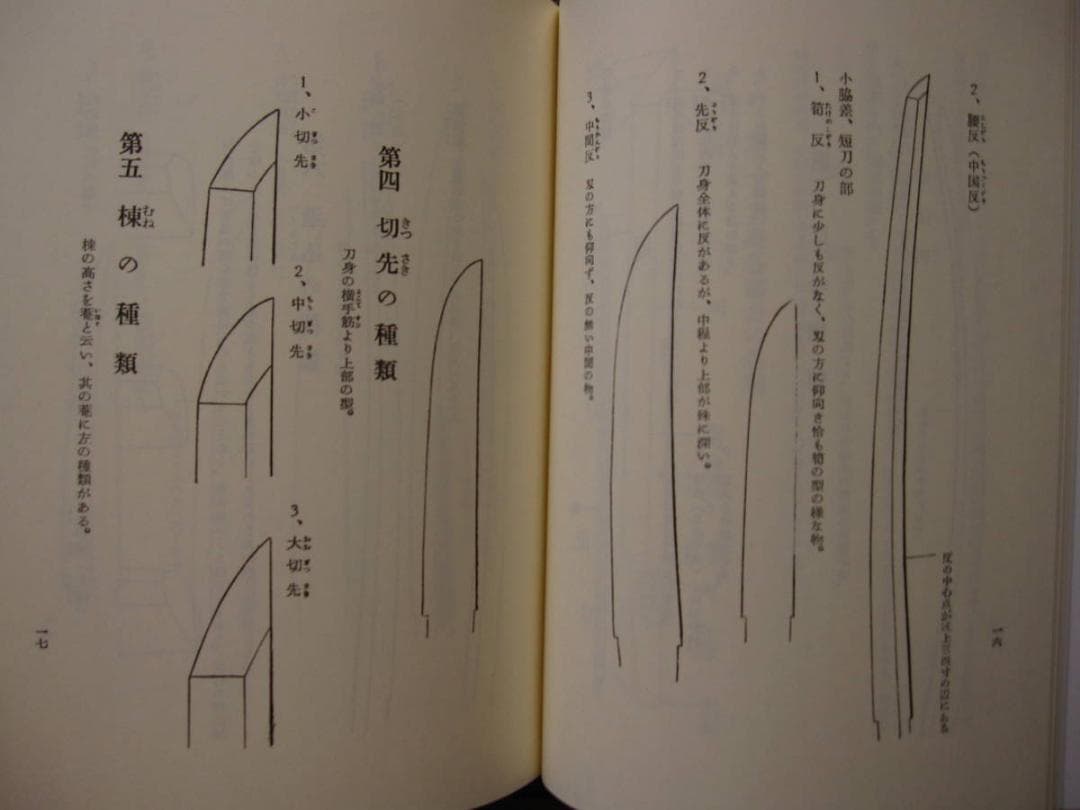 2、腰反（中国反）
反の中心点が区上三四寸の辺にある
小脇差、短刀の部
1、筍反 刀身に少しも反がなく、刄の方に仰向き恰も筍の型の様な物。
2、先反 刀身全体に反があるが、中程より上部が殊に深い。
3、中間反 刄の方にも仰向ず、反の無い中間の物。
一六
第四 切先の種類
刀身の横手筋より上部の型。
1、小切先
2、中切先
3、大切先
第五 棟の種類
棟の高さを菴と云い、其の菴に左の種類がある。
一七